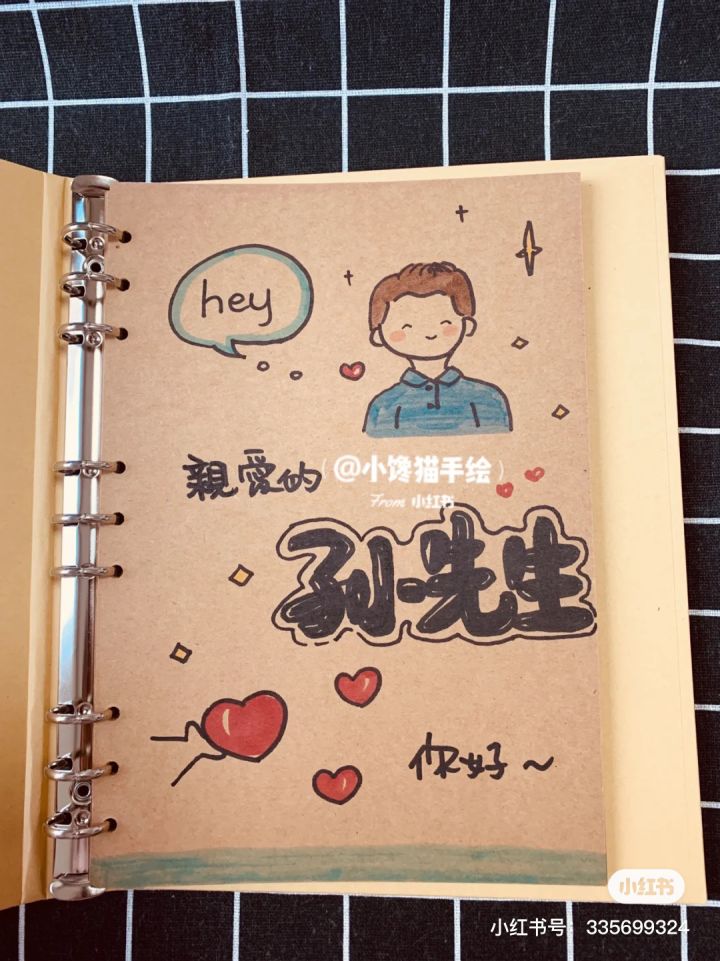 hey
親愛的
(@小馋猫手绘)
From 小红书
孙先生
你好~
小红书
小红书号：335699324